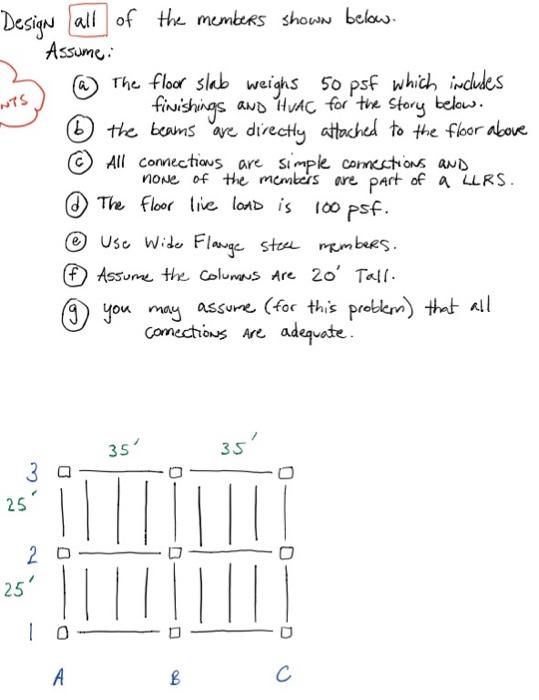 Design all of the members shown below.
Assume:
NTS
(a) The floor slab weighs 50 psf which includes
finishings AND HVAC for the story below.
(b) the beams are directly attached to the floor above
(c) All connections are simple connections AND
none of the members are part of a LLRS.
(d) The floor live load is 100 psf.
(e) Use Wide Flange steel members.
(f) Assume the columns Are 20' Tall.
(g) you may assume (for this problem) that all
connections Are adequate.
35' 35'
3
25'
2
25'
1
A B C